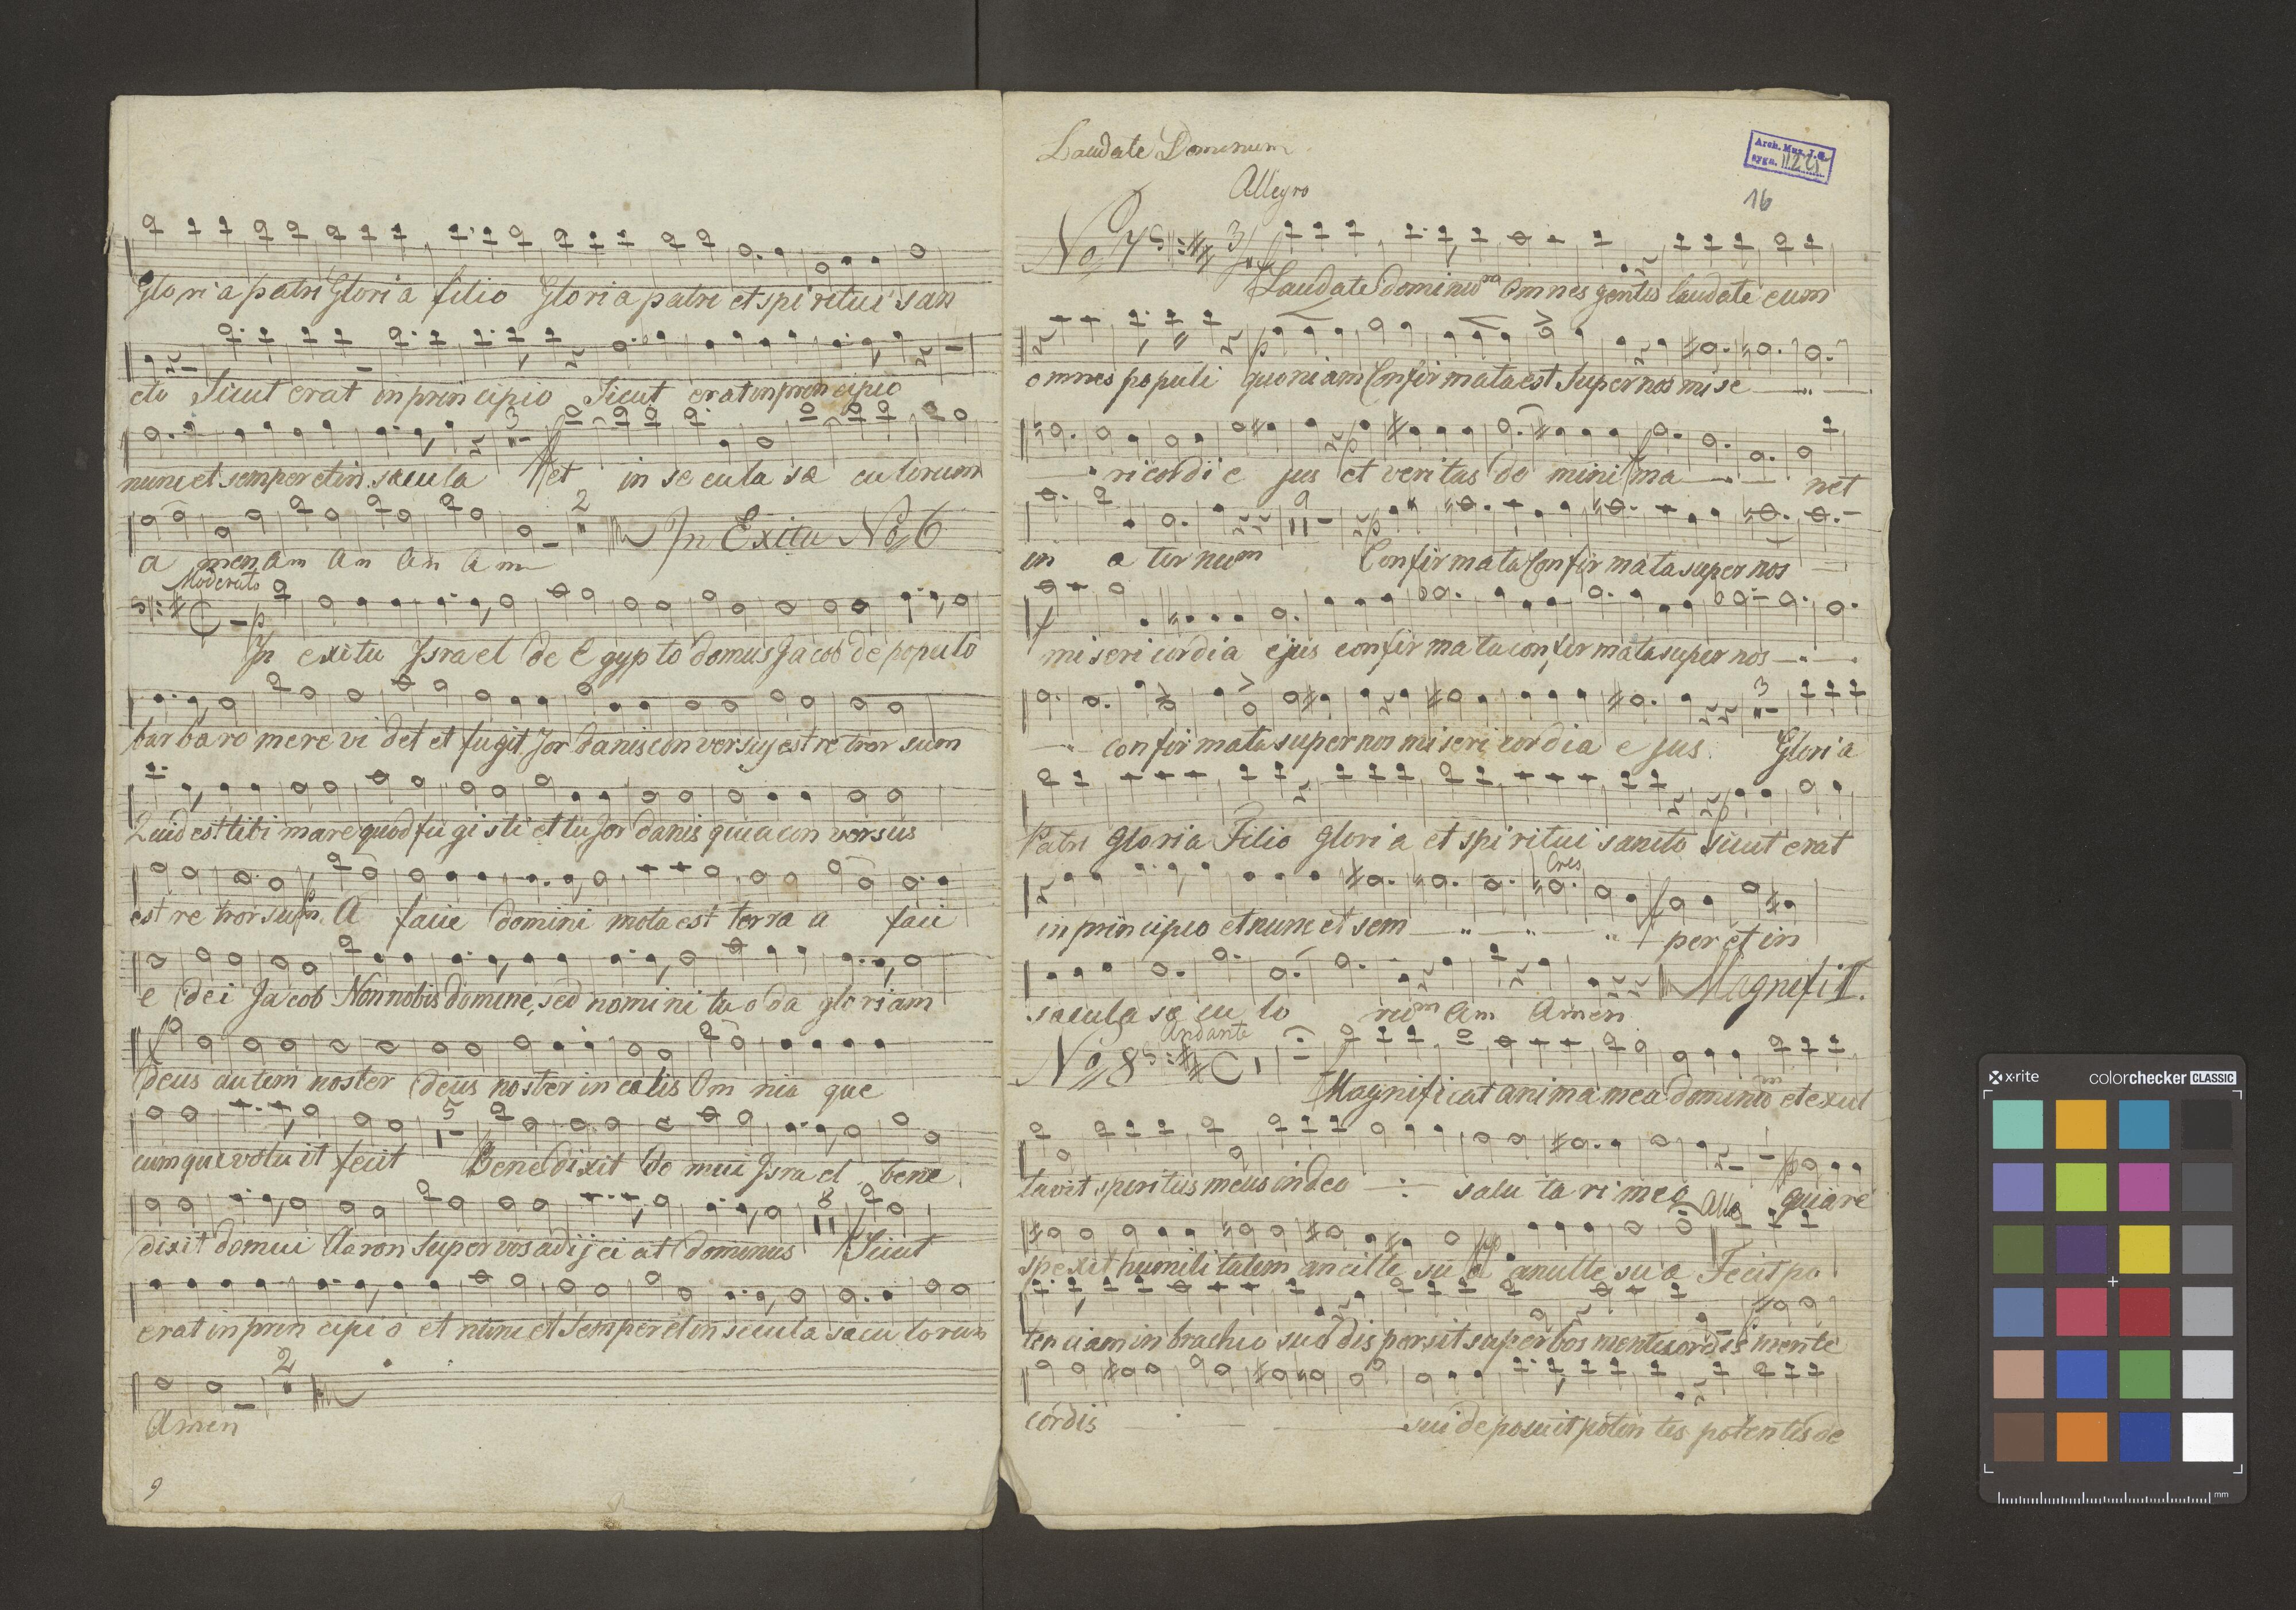 Gloria patri Gloria filio Gloria patri et spiritui san
cto Sicut erat in principio Sicut erat in principio
nunc et semper et in sæcula et in secula sæ culorum
a men am an an am
In Exitu No 6
Moderato
In exitu Israel de Egypto domus Jacob de populo
barbaro mere vi det et fugit Jordanis conversus est retrorsum
Quid est tibi mare quod fugisti et tu Jordanis quia conversus
est retrorsum A facie domini mota est terra a faci
e dei Jacob Non nobis domine, sed nomini tuo da gloriam
deus autem noster deus noster in celis Om nia que
cumque voluit fecit Benedixit do mui Israel bene
dixit domui Aaron Super vos adijciat dominus Sicut
erat in principio et nunc et Semper et in secula sæculorum
Amen
9
Laudate Dominum
Arch. Muz. J.G.
sygn.
16
Allegro
No 7
Laudate dominum Omnes gentes laudate eum
omnes populi quoniam Confirmata est Super nos mise
ricordi e jus et veritas do mini ma net
in a ter num Confirmata Confirmata super nos
misericordia ejus confirmata confirmata super nos
confirmata super nos misericordia e jus. Gloria
Patri Gloria Filio Gloria et spiritui sancto sicut erat
Cres
in principio et nunc et sem per et in
sæcula sæ cu lo rum Am Amen
Magnifi
Andante
No 8
Magnificat anima mea dominum et exul
tavit speritus meus in deo salu ta ri meo quia re
Allo
spexit humilitatem ancille su æ ancille suæ Fecit po
tenciam in brachio suo dispersit superbos mente cordis mente
cordis sui deposuit poten tes potentes de
x-rite
colorchecker CLASSIC
mm